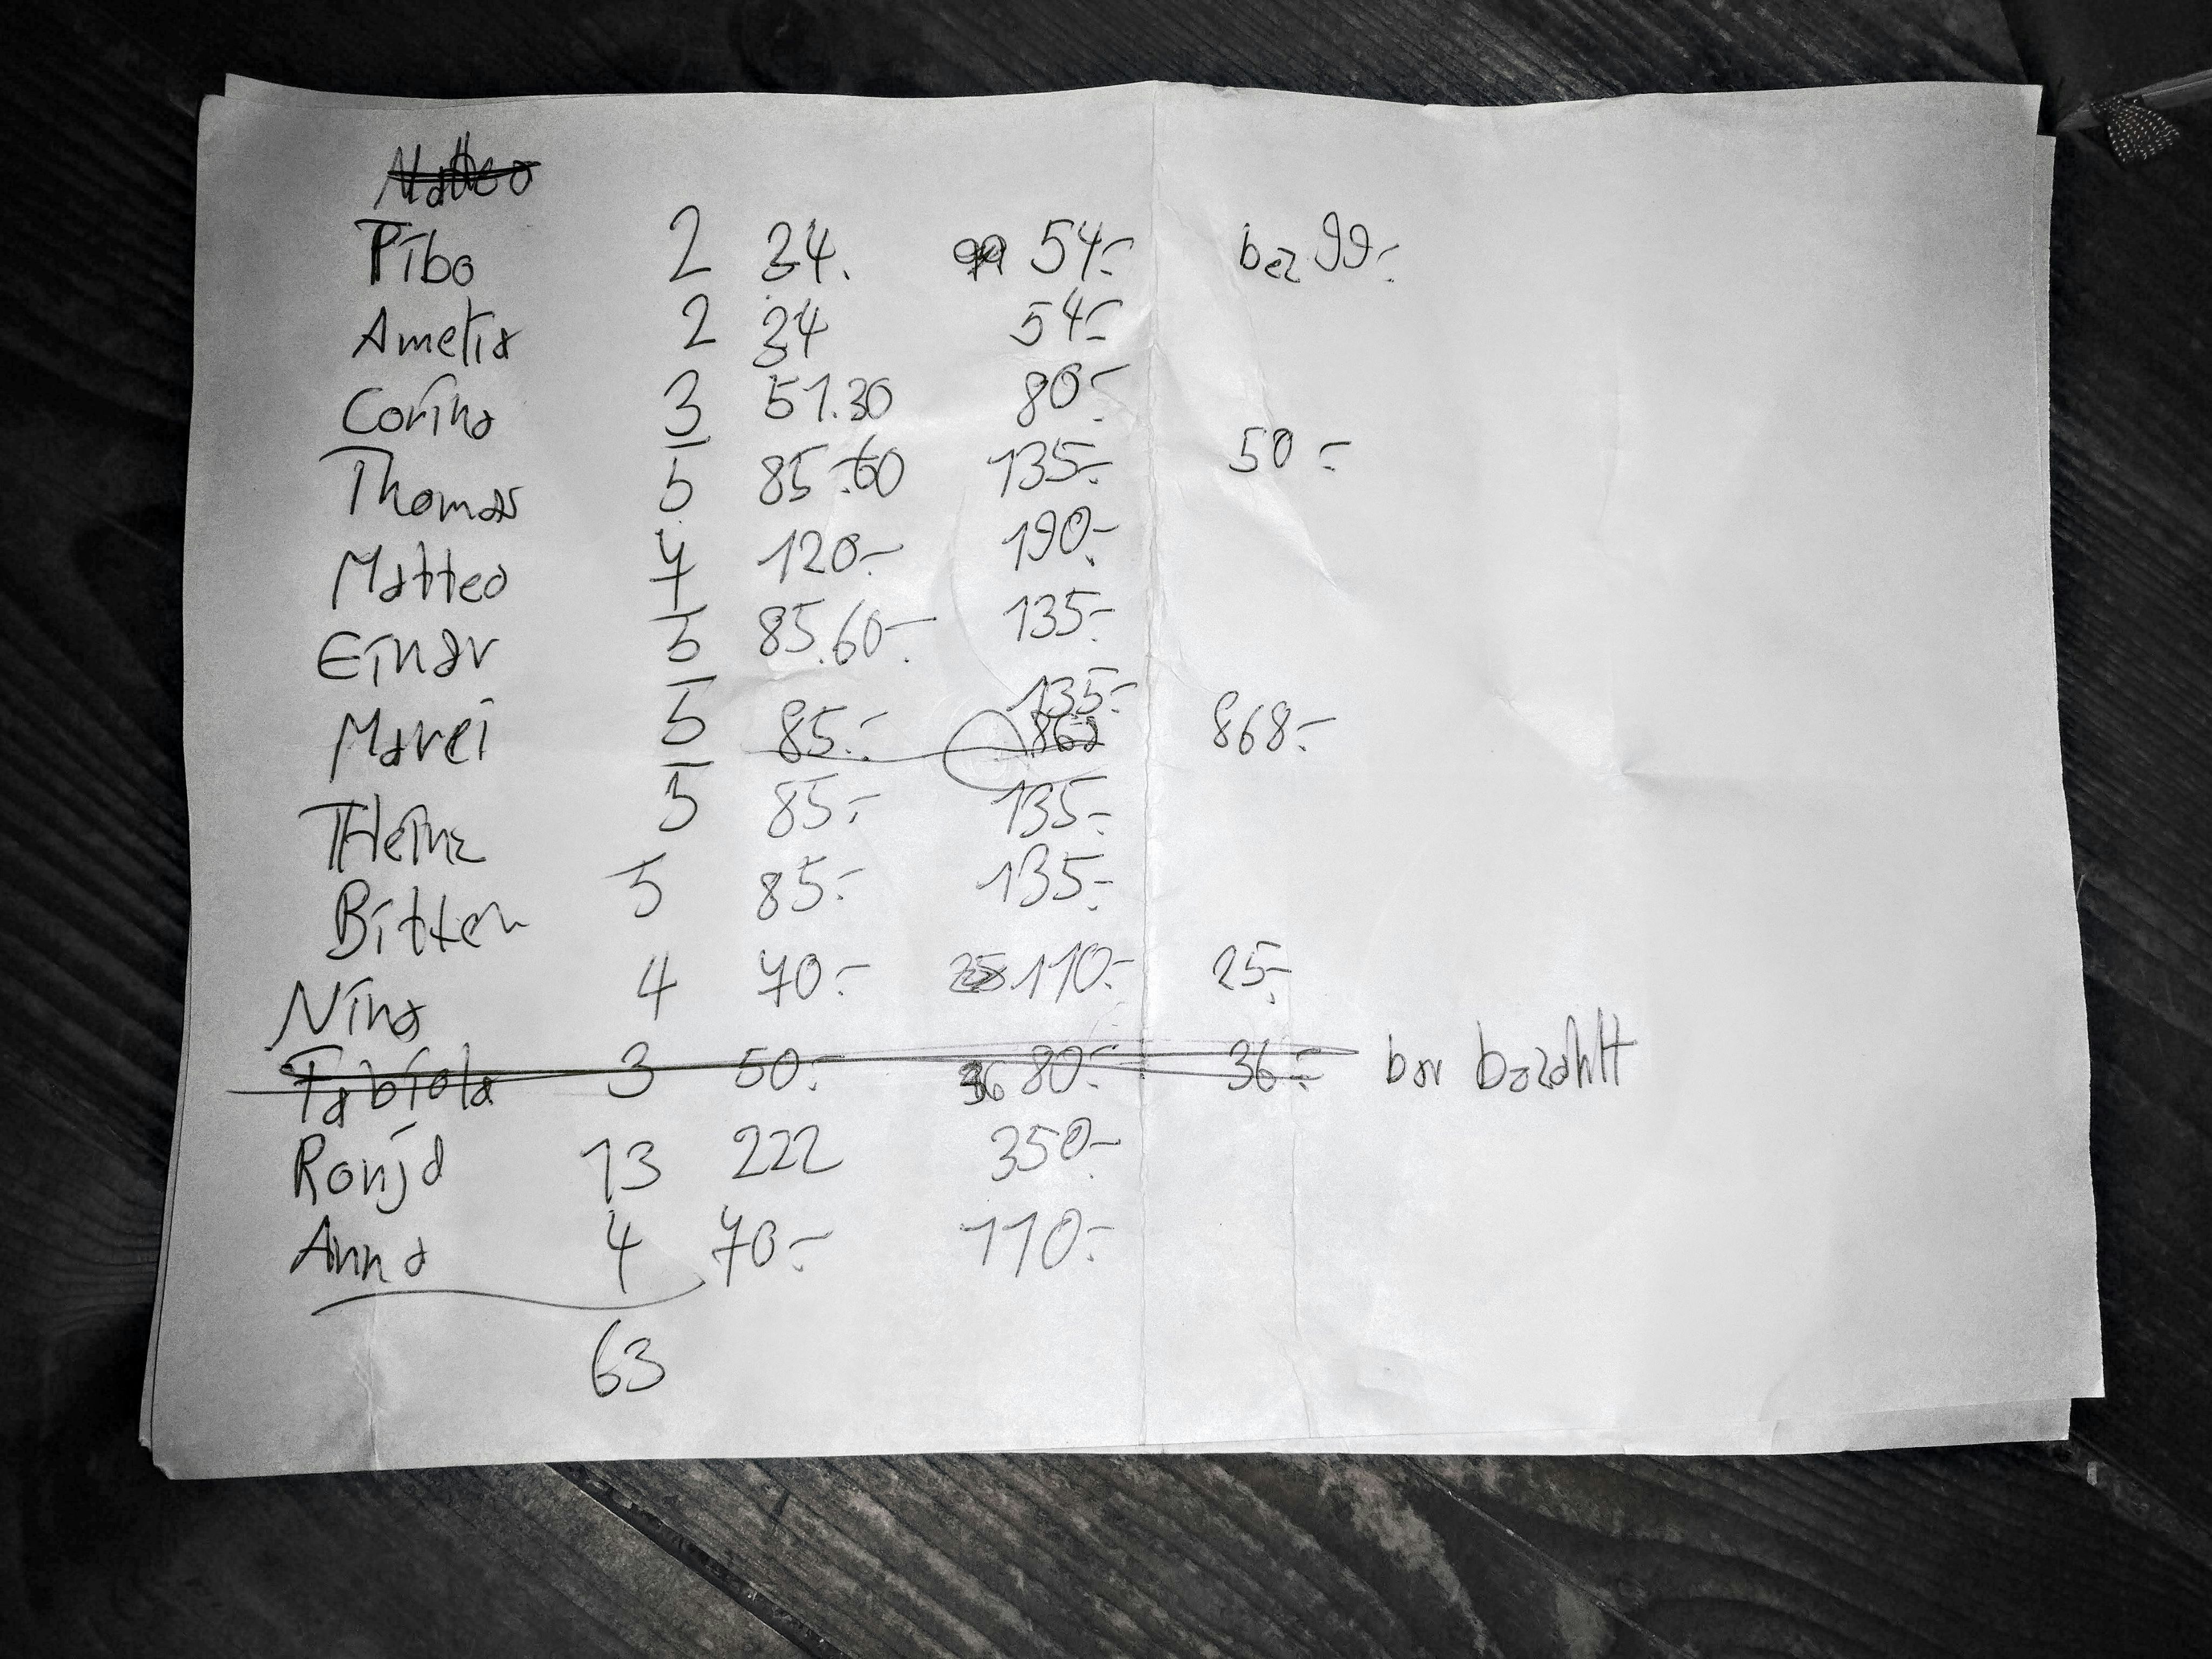 Matteo
Pibo 2 34. 99 54.- bez 99.-
Amelia 2 34 54.-
Corina 3 51.30 80.-
Thomas 5 85.60 135.- 50.-
Matteo 7 120.- 190.-
Einar 5 85.60.- 135.-
Marei 5 85.- 135.-
868 868.-
THeinz 5 85.- 135.-
5 85.- 135.-
Nina 4 70.- 25 110.- 25.-
Fabiola 3 50.- 36 80.- 36.- bar bezahlt
Ronja 13 222 350.-
Anna 4 70.- 110.-
63